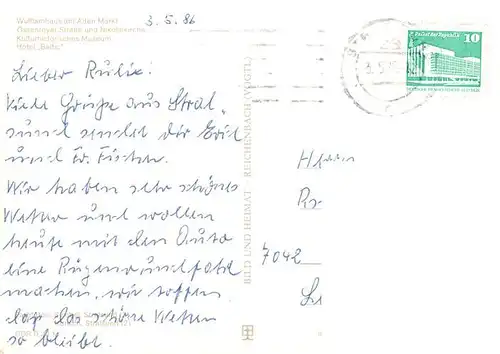 Wulflamhaus am Alten Markt
3. 5. 86
Kulturhistorisches Museum
Hotel „Baltic"
Lieber
Viele Grüße aus Stral-
sund sendet dir
und Fr. Fischer.
Wir haben sehr schönes
Wetter und wollen
heute mit dem Auto
eine Rügenrundfahrt
machen, wir hoffen
daß das schöne Wetter
so bleibt.
BILD UND HEIMAT REICHENBACH (VOGTL)
10
Palast der Republik
3. 5.
Herrn
7042